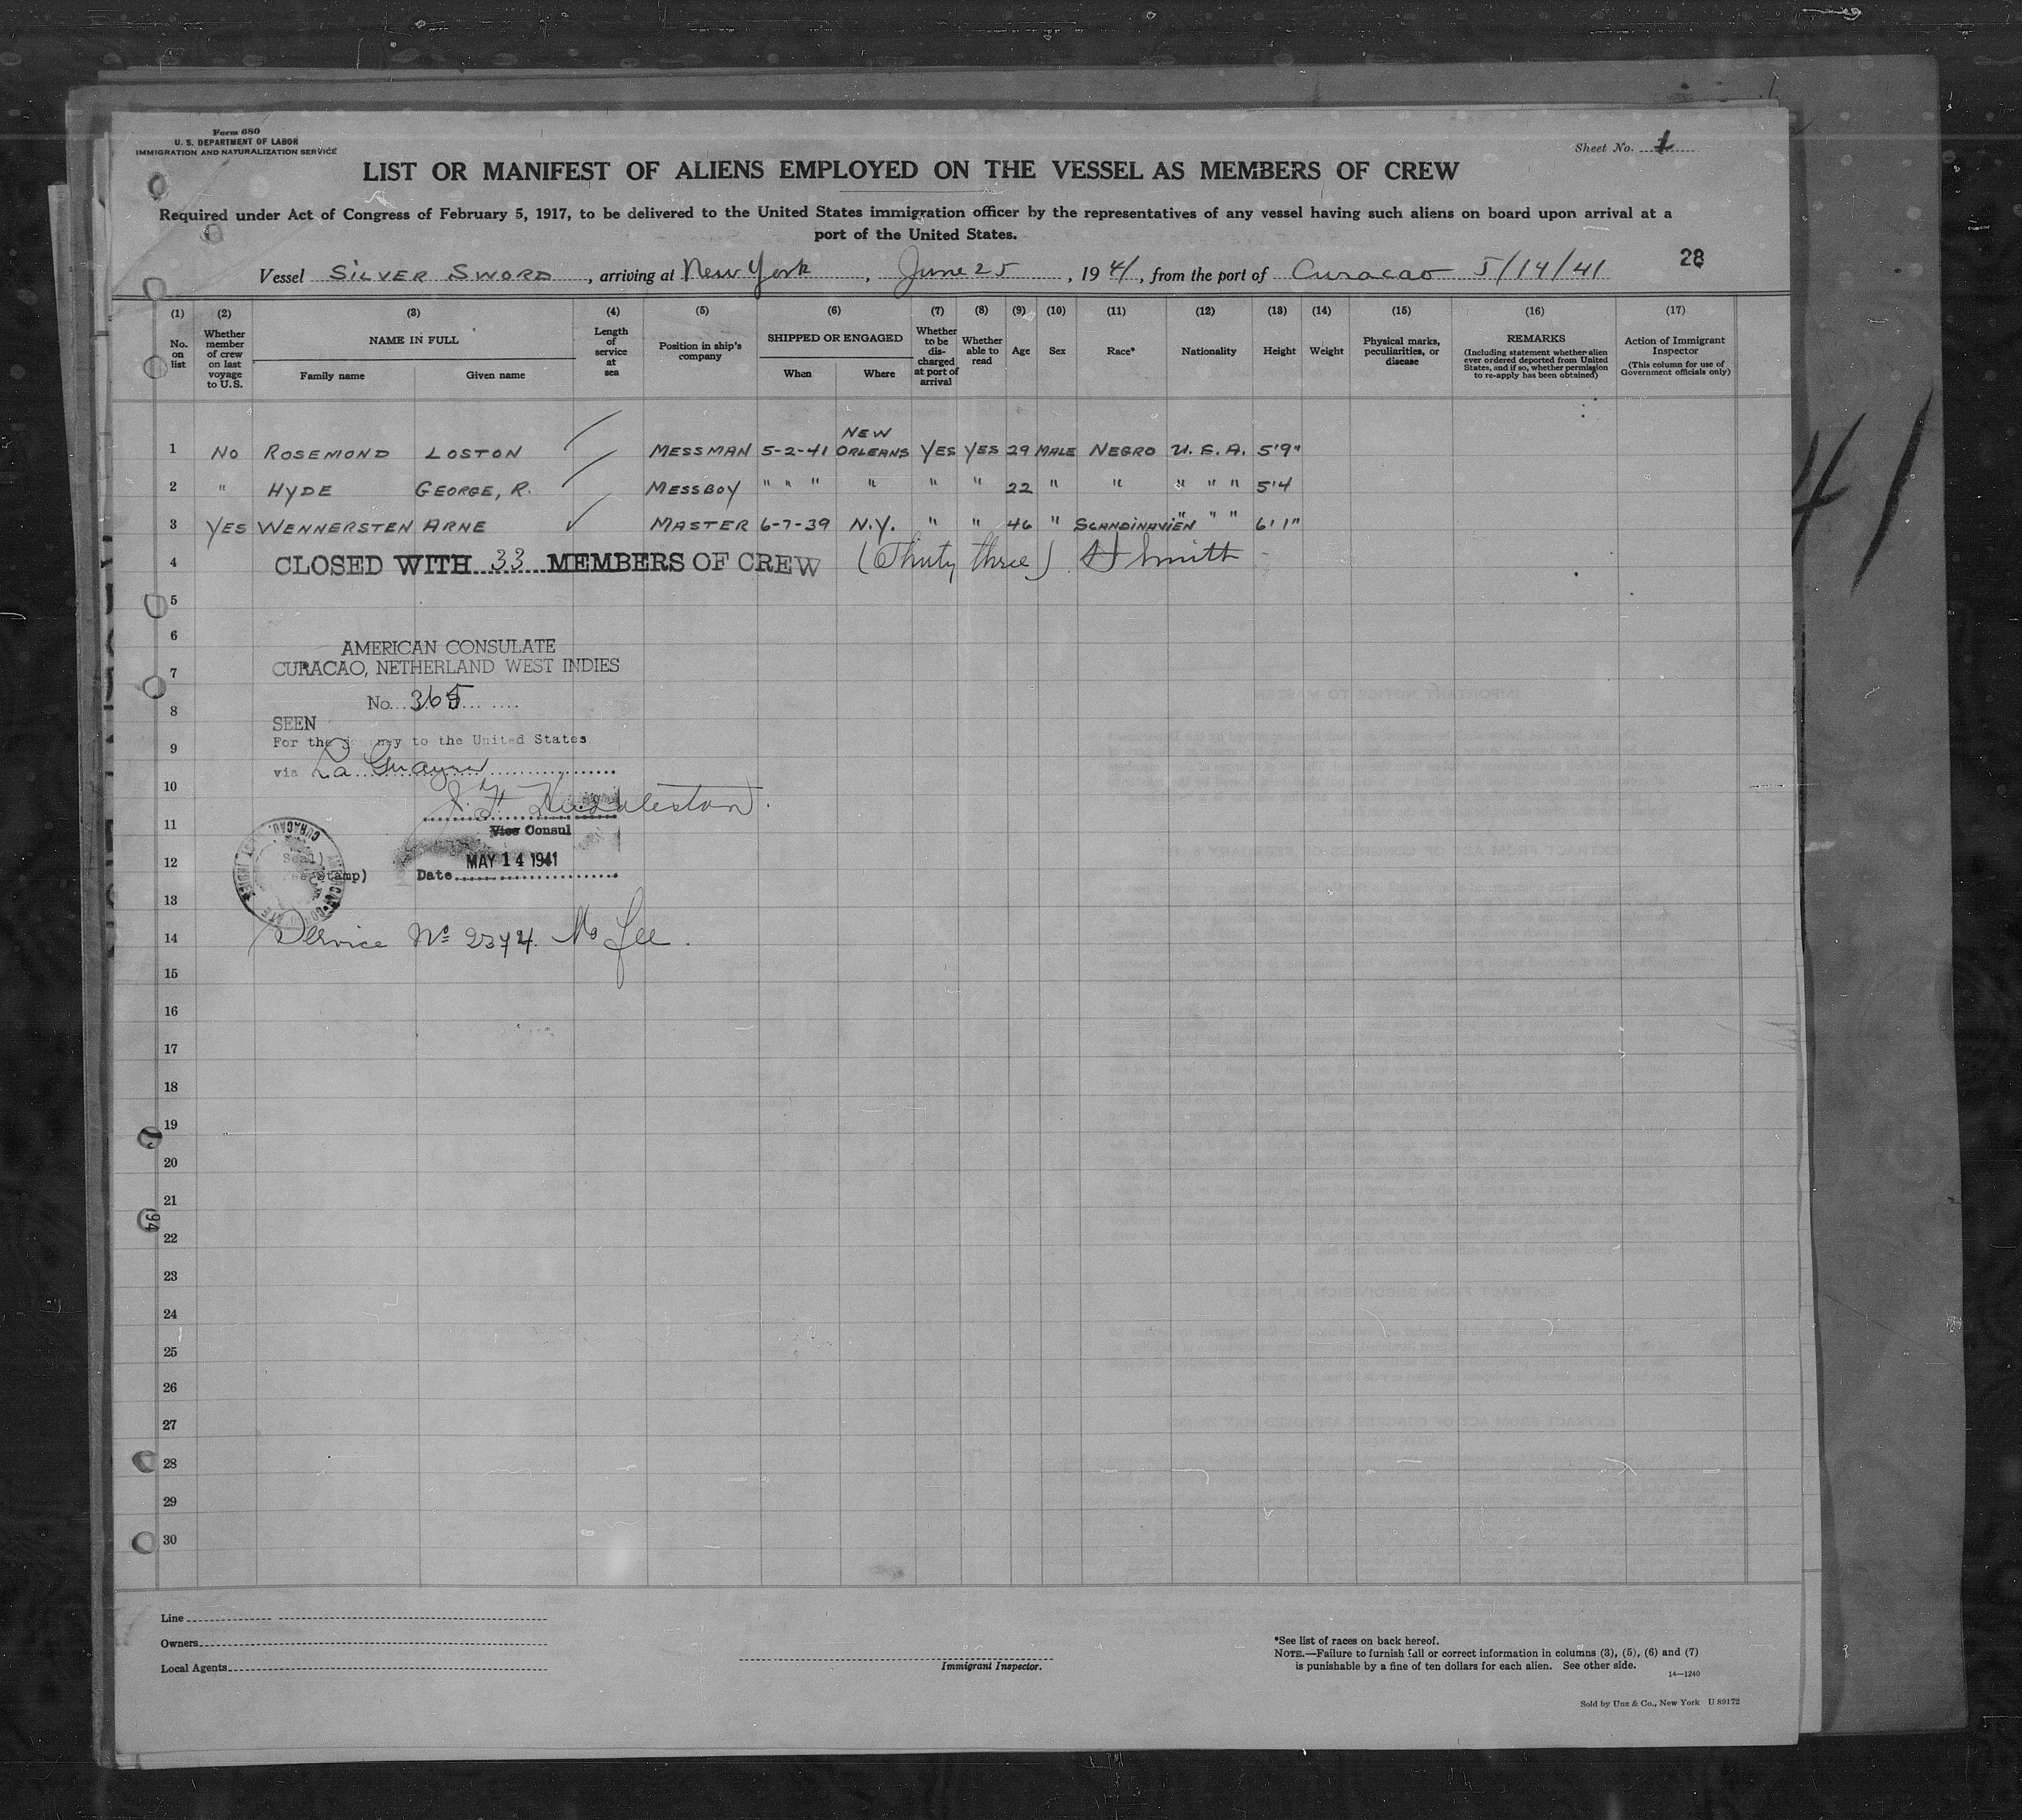 Form 680
U. S. DEPARTMENT OF LABOR
IMMIGRATION AND NATURALIZATION SERVICE
Sheet No.
LIST OR MANIFEST OF ALIENS EMPLOYED ON THE VESSEL AS MEMBERS OF CREW
Required under Act of Congress of February 5, 1917, to be delivered to the United States immigration officer by the representatives of any vessel having such aliens on board upon arrival at a
port of the United States.
28
Vessel SILVER SWORD, arriving at New York, June 25, 1941, from the port of Curacao 5/14/41
(1) (2) (3) (4) (5) (6) (7) (8) (9) (10) (11) (12) (13) (14) (15) (16) (17)
No. on list
Whether member of crew on last voyage to U.S.
NAME IN FULL
Family name Given name
Length of service at sea
Position in ship's company
SHIPPED OR ENGAGED
When Where
Whether to be discharged at port of arrival
Whether able to read
Age
Sex
Race*
Nationality
Height
Weight
Physical marks, peculiarities, or disease
REMARKS
(Including statement whether alien ever ordered deported from United States, and if so, whether permission to re-apply has been obtained)
Action of Immigrant Inspector
(This column for use of Government officials only)
1 NO ROSEMOND LOSTON MESSMAN 5-2-41 NEW ORLEANS YES YES 29 MALE NEGRO U.S.A. 5'9"
2 " HYDE GEORGE, R. MESSBOY " " " " " " 22 " " " " " 5'4
3 YES WENNERSTEN ARNE MASTER 6-7-39 N.Y. " " 46 " SCANDINAVIEN " " " 6'1"
4 CLOSED WITH 33 MEMBERS OF CREW (Thirty three) H Smith
5
6
AMERICAN CONSULATE
7 CURACAO, NETHERLAND WEST INDIES
No. 365
8
SEEN
For the journey to the United States
9
via La Guayra
10
J. F. Huddleston.
11
Vice Consul
12 MAY 14 1941
Seal)
stamp) Date
13
14 Service No 2374. No Fee.
15
16
17
18
19
20
21
22
23
24
25
26
27
28
29
30
Line
Owners
Local Agents
Immigrant Inspector.
*See list of races on back hereof.
NOTE.—Failure to furnish full or correct information in columns (3), (5), (6) and (7)
is punishable by a fine of ten dollars for each alien. See other side.
14—1240
Sold by Unz & Co., New York U 89172
41